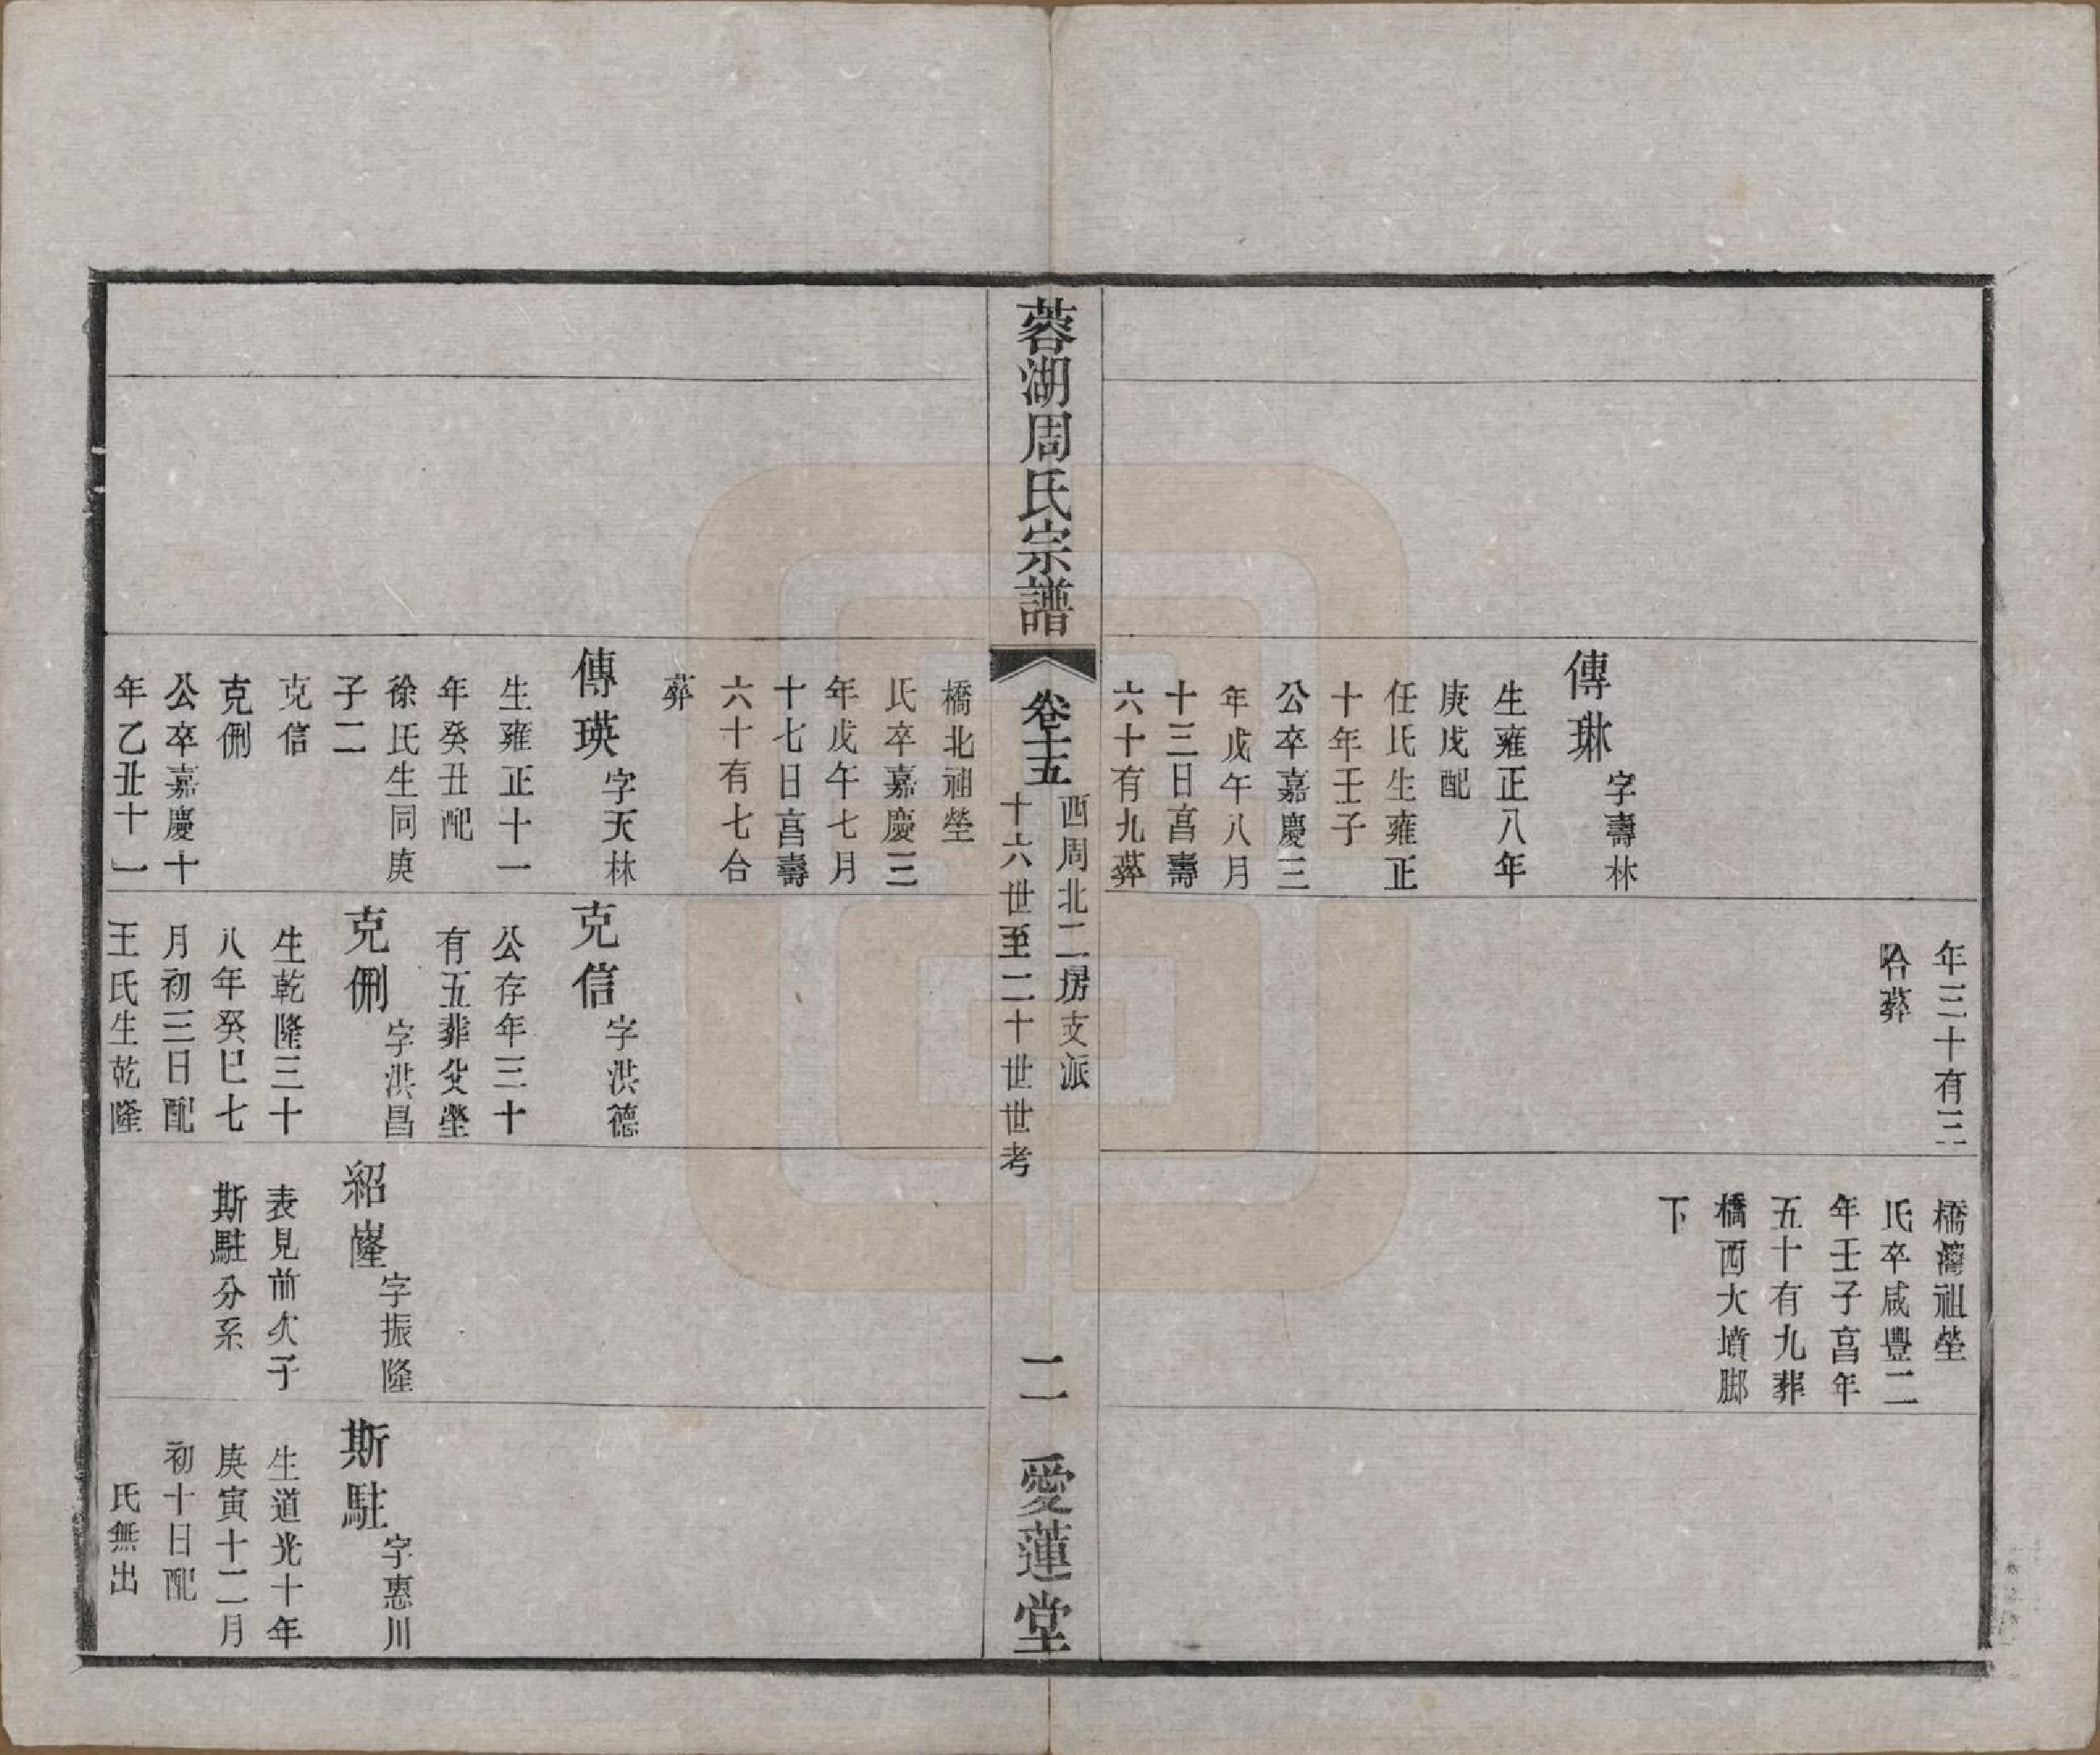 傳琳
字壽林
生雍正八年
庚戌配
任氏生雍正
十年壬子
公卒嘉慶三
年戊午八月
十三日亯壽
六十有九葬
年三十有三
哈葬
橋灣祖塋
氏卒咸豐二
年壬子亯年
五十有九葬
橋西大墳脚
下
蓉湖周氏宗譜
卷十五
西周北二房支派
十六世至二十世世考
二
愛蓮堂
橋北祖塋
氏卒嘉慶三
年戊午七月
十七日亯壽
六十有七合
葬
傳瑛
字天林
生雍正十一
年癸丑配
徐氏生同庚
子二
克信
克侀
公卒嘉慶十
年乙丑十一
克信
字洪德
公存年三十
有五葬父塋
克侀
字洪昌
生乾隆三十
八年癸巳七
月初三日配
王氏生乾隆
紹嶐
字振隆
表見前次子
斯駐分系
斯駐
字惠川
生道光十年
庚寅十二月
初十日配
氏無出